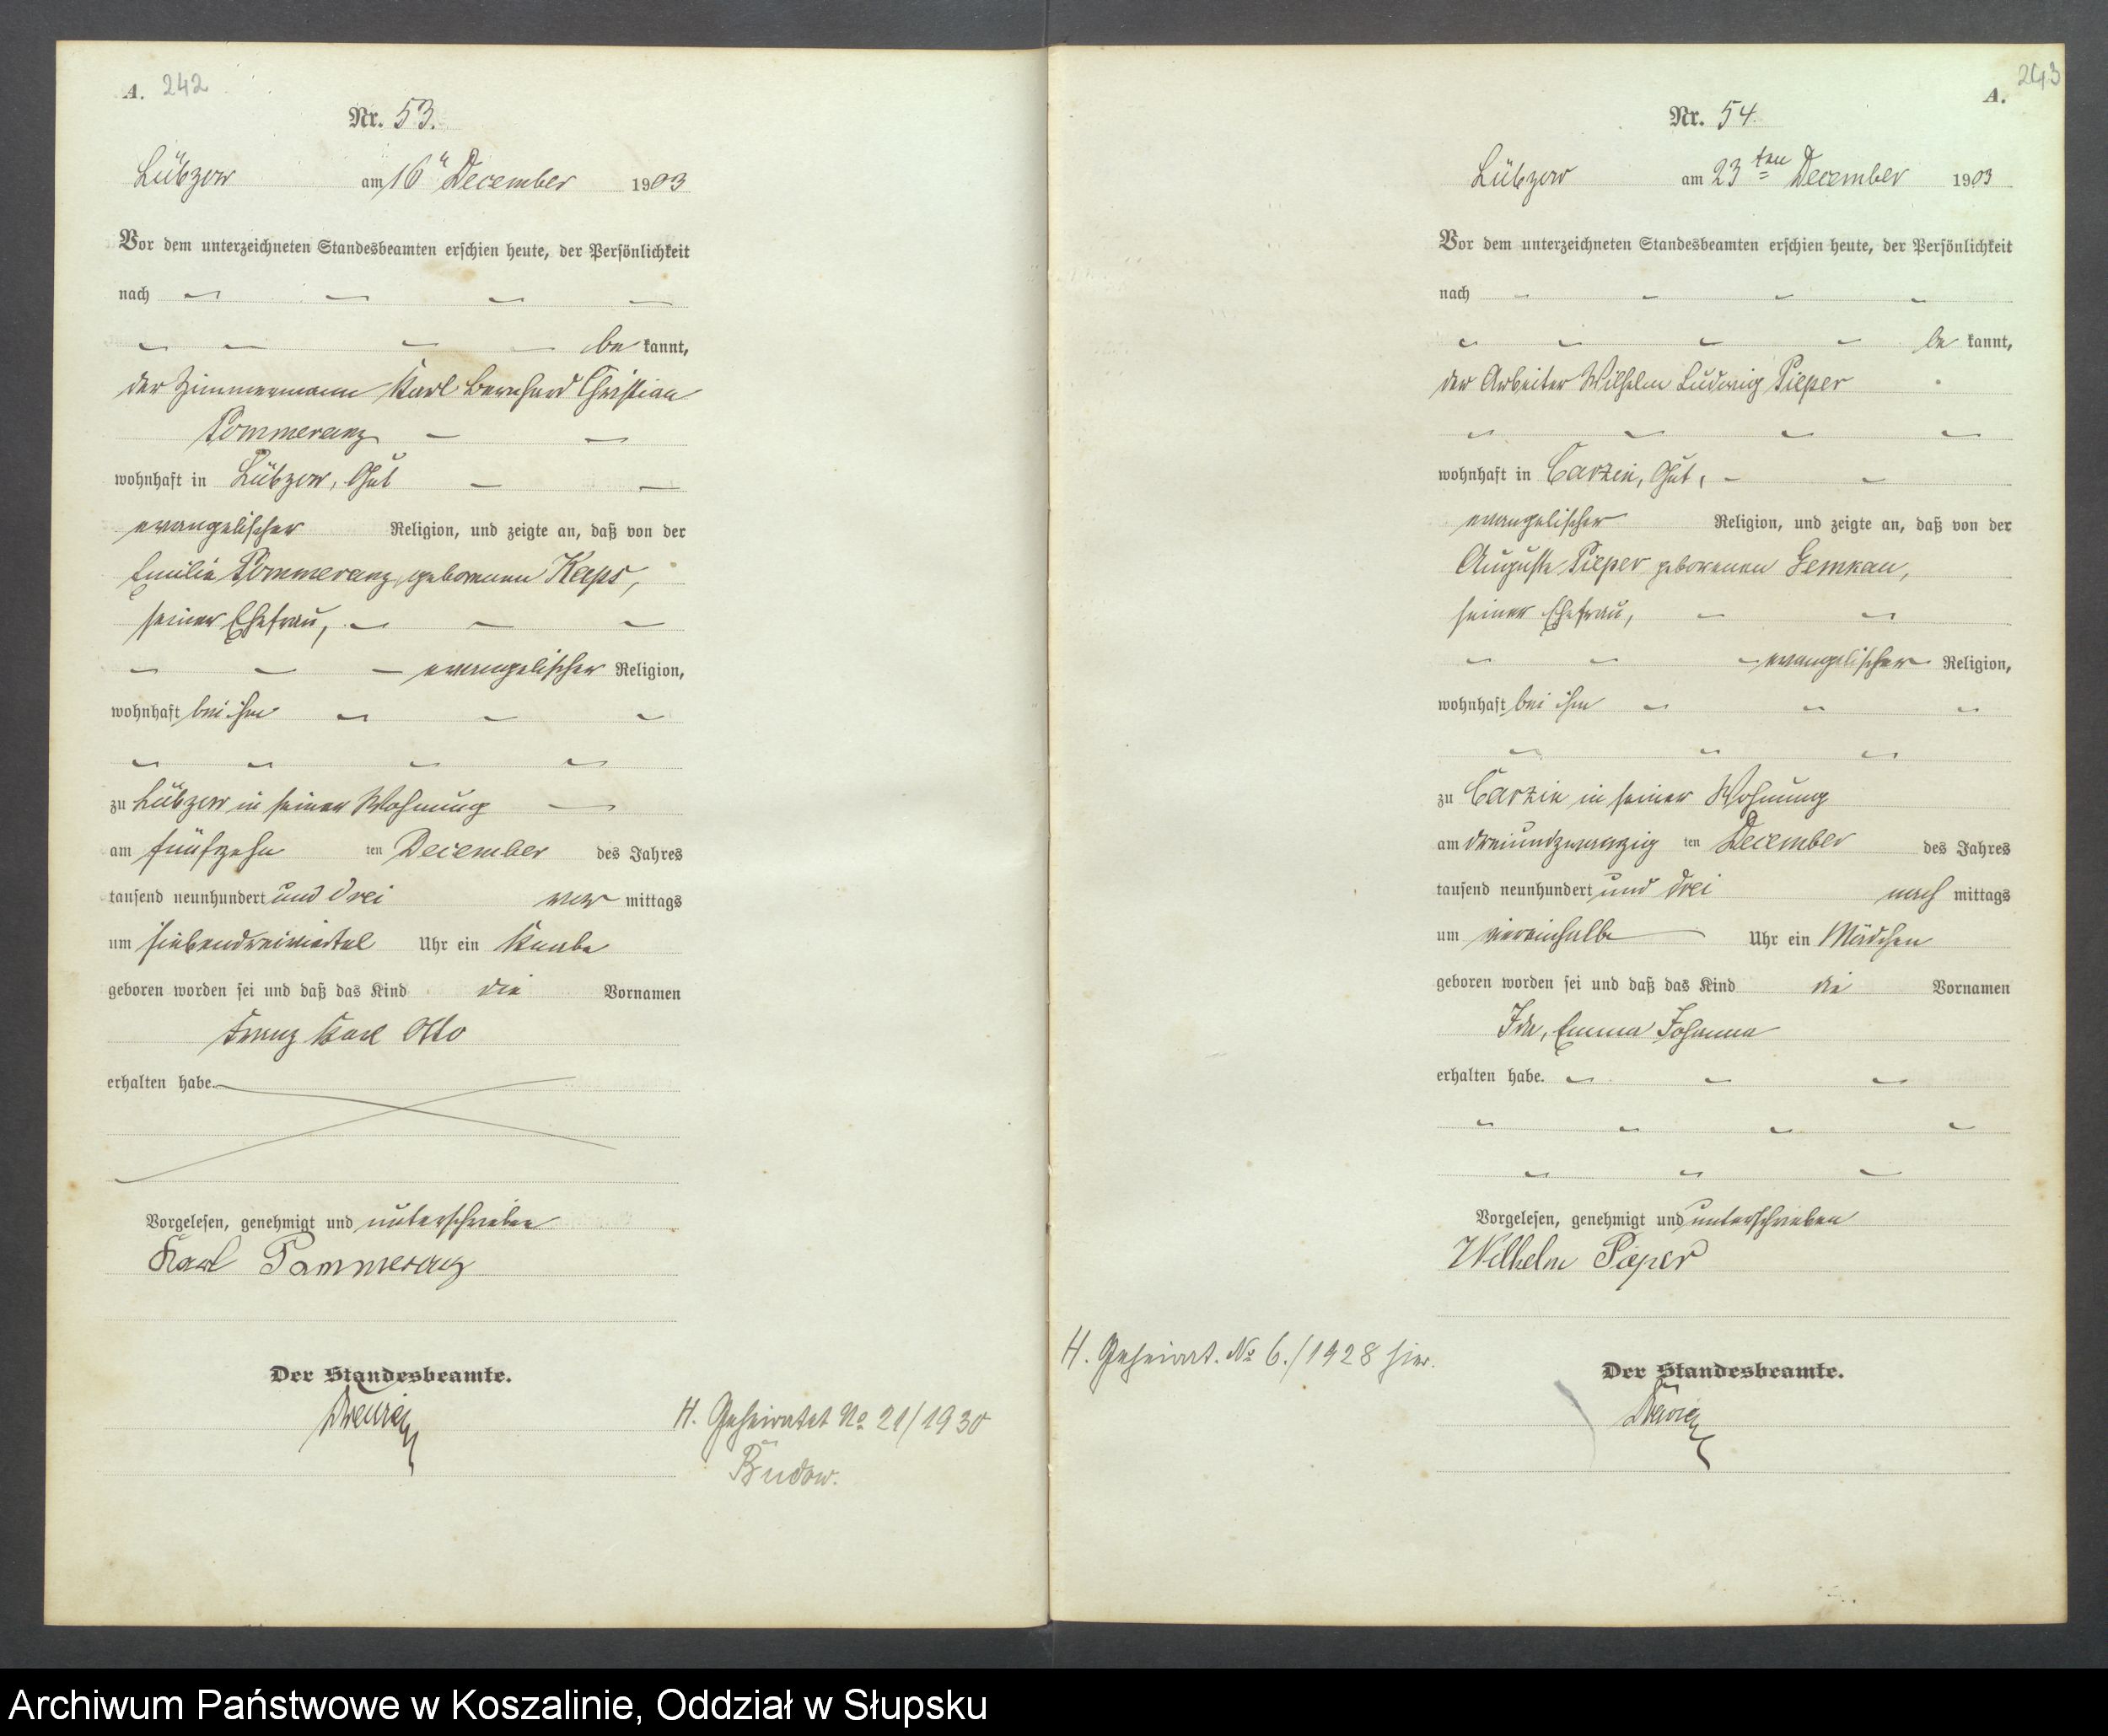 A. 242
Nr. 53.
Lübzow am 16ᵗ December 1903
Vor dem unterzeichneten Standesbeamten erschien heute, der Persönlichkeit
nach
be kannt,
der Zimmermann Karl Bernhard Christian
Pommeranz
wohnhaft in Lübzow, Gut
evangelischer Religion, und zeigte an, daß von der
Emilie Pommeranz, geborenen Keps,
seiner Ehefrau,
evangelischer Religion,
wohnhaft bei ihm
zu Lübzow in seiner Wohnung
am fünfzehn ten December des Jahres
tausend neunhundert und drei vor mittags
um siebendreiviertel Uhr ein Knabe
geboren worden sei und daß das Kind die Vornamen
Franz Karl Otto
erhalten habe.
Vorgelesen, genehmigt und unterschrieben
Karl Pommeranz
Der Standesbeamte.
H. Geheiratet No 21/1930
Budow.
243
A.
Nr. 54.
Lübzow am 23ten December 1903
Vor dem unterzeichneten Standesbeamten erschien heute, der Persönlichkeit
nach
be kannt,
der Arbeiter Wilhelm Ludwig Pieper
wohnhaft in Carzin, Gut,
evangelischer Religion, und zeigte an, daß von der
Auguste Pieper geborenen Gemkau,
seiner Ehefrau,
evangelischer Religion,
wohnhaft bei ihm
zu Carzin in seiner Wohnung
am dreiundzwanzig ten December des Jahres
tausend neunhundert und drei nach mittags
um viereinhalb Uhr ein Mädchen
geboren worden sei und daß das Kind die Vornamen
Ida, Emma Johanna
erhalten habe.
Vorgelesen, genehmigt und unterschrieben
Wilhelm Pieper
H. Geheirat. No 6./1928 hier.
Der Standesbeamte.
Archiwum Państwowe w Koszalinie, Oddział w Słupsku